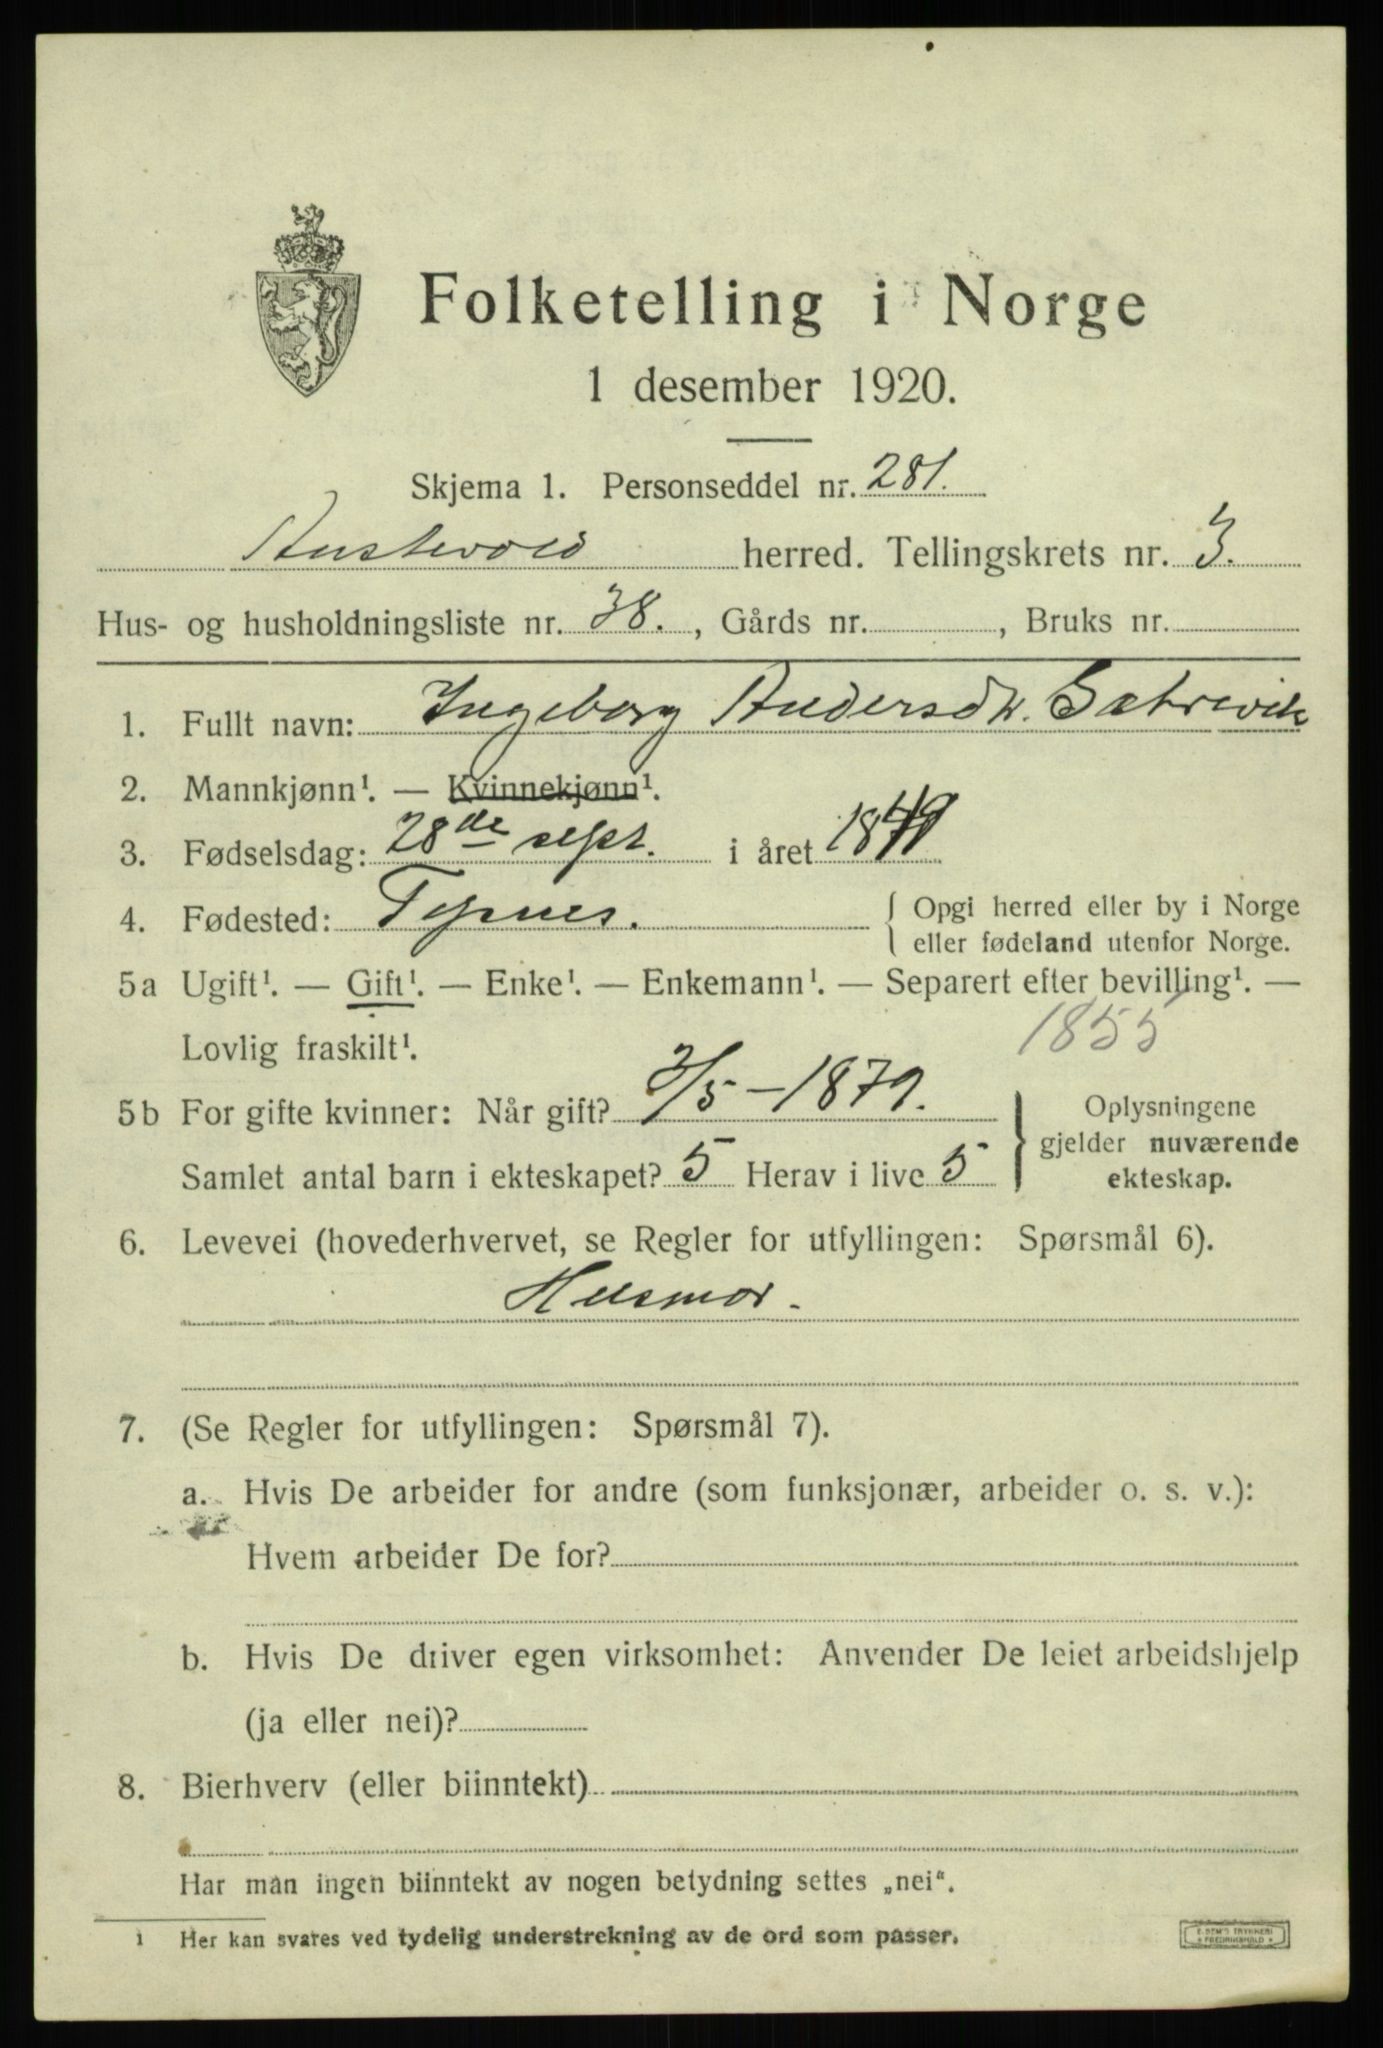 Folketelling i Norge
1 desember 1920.
Skjema 1. Personseddel nr. 281.
Austevold herred. Tellingskrets nr. 3.
Hus- og husholdningsliste nr. 38. , Gårds nr. , Bruks nr.
1. Fullt navn: Ingeborg Andersdtr.
2. Mannkjønn¹. — Kvinnekjønn¹.
3. Fødselsdag: 28de sept. i året
4. Fødested: Tysnes. { Opgi herred eller by i Norge
eller fødeland utenfor Norge.
5a Ugift¹. — Gift¹. — Enke¹. — Enkemann¹. — Separert efter bevilling¹. —
Lovlig fraskilt¹. 1855
5b For gifte kvinner: Når gift? 3/5 – 1879. } Oplysningene
gjelder nuværende
Samlet antal barn i ekteskapet? 5 Herav i live 5 ekteskap.
6. Levevei (hovederhvervet, se Regler for utfyllingen: Spørsmål 6).
Husmor.
7. (Se Regler for utfyllingen: Spørsmål 7).
a. Hvis De arbeider for andre (som funksjonær, arbeider o. s. v.):
Hvem arbeider De for?
b. Hvis De driver egen virksomhet: Anvender De leiet arbeidshjelp
(ja eller nei)?
8. Bierhverv (eller biinntekt)
Har man ingen biinntekt av nogen betydning settes „nei“.
1 Her kan svares ved tydelig understrekning av de ord som passer.
E. SEM'S TRYKKERI
FREDRIKSHALD